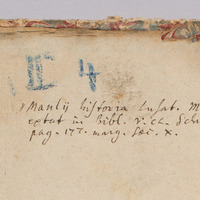 II 4
Manlij historia Lusat. M
extat in Bibl. V. cl. Schr
pag. 177. marg. sec. X.